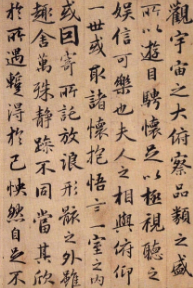 觀宇宙之大俯察品類之盛
所以遊目騁懷足以極視聽之
娛信可樂也夫人之相與俯仰
一世或取諸懷抱悟言一室之內
或因寄所託放浪形骸之外雖
趣舍萬殊靜躁不同當其欣
於所遇蹔得於己怏然自足不